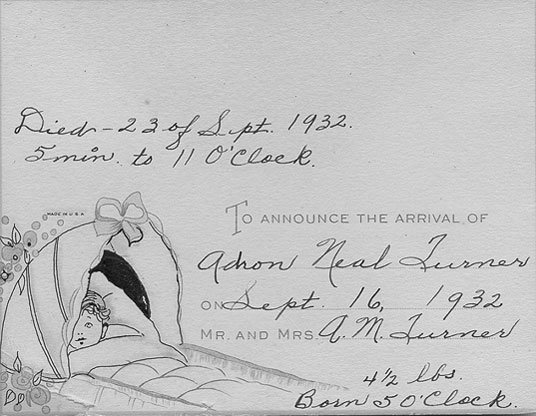 Died - 23 of Sept. 1932.
5 min. to 11 O'Clock.
MADE IN U.S.A
TO ANNOUNCE THE ARRIVAL OF
Adron Neal Turner
ON Sept. 16, 1932
MR. AND MRS. A. M. Turner
4 1/2 lbs.
Born 5 O'Clock.